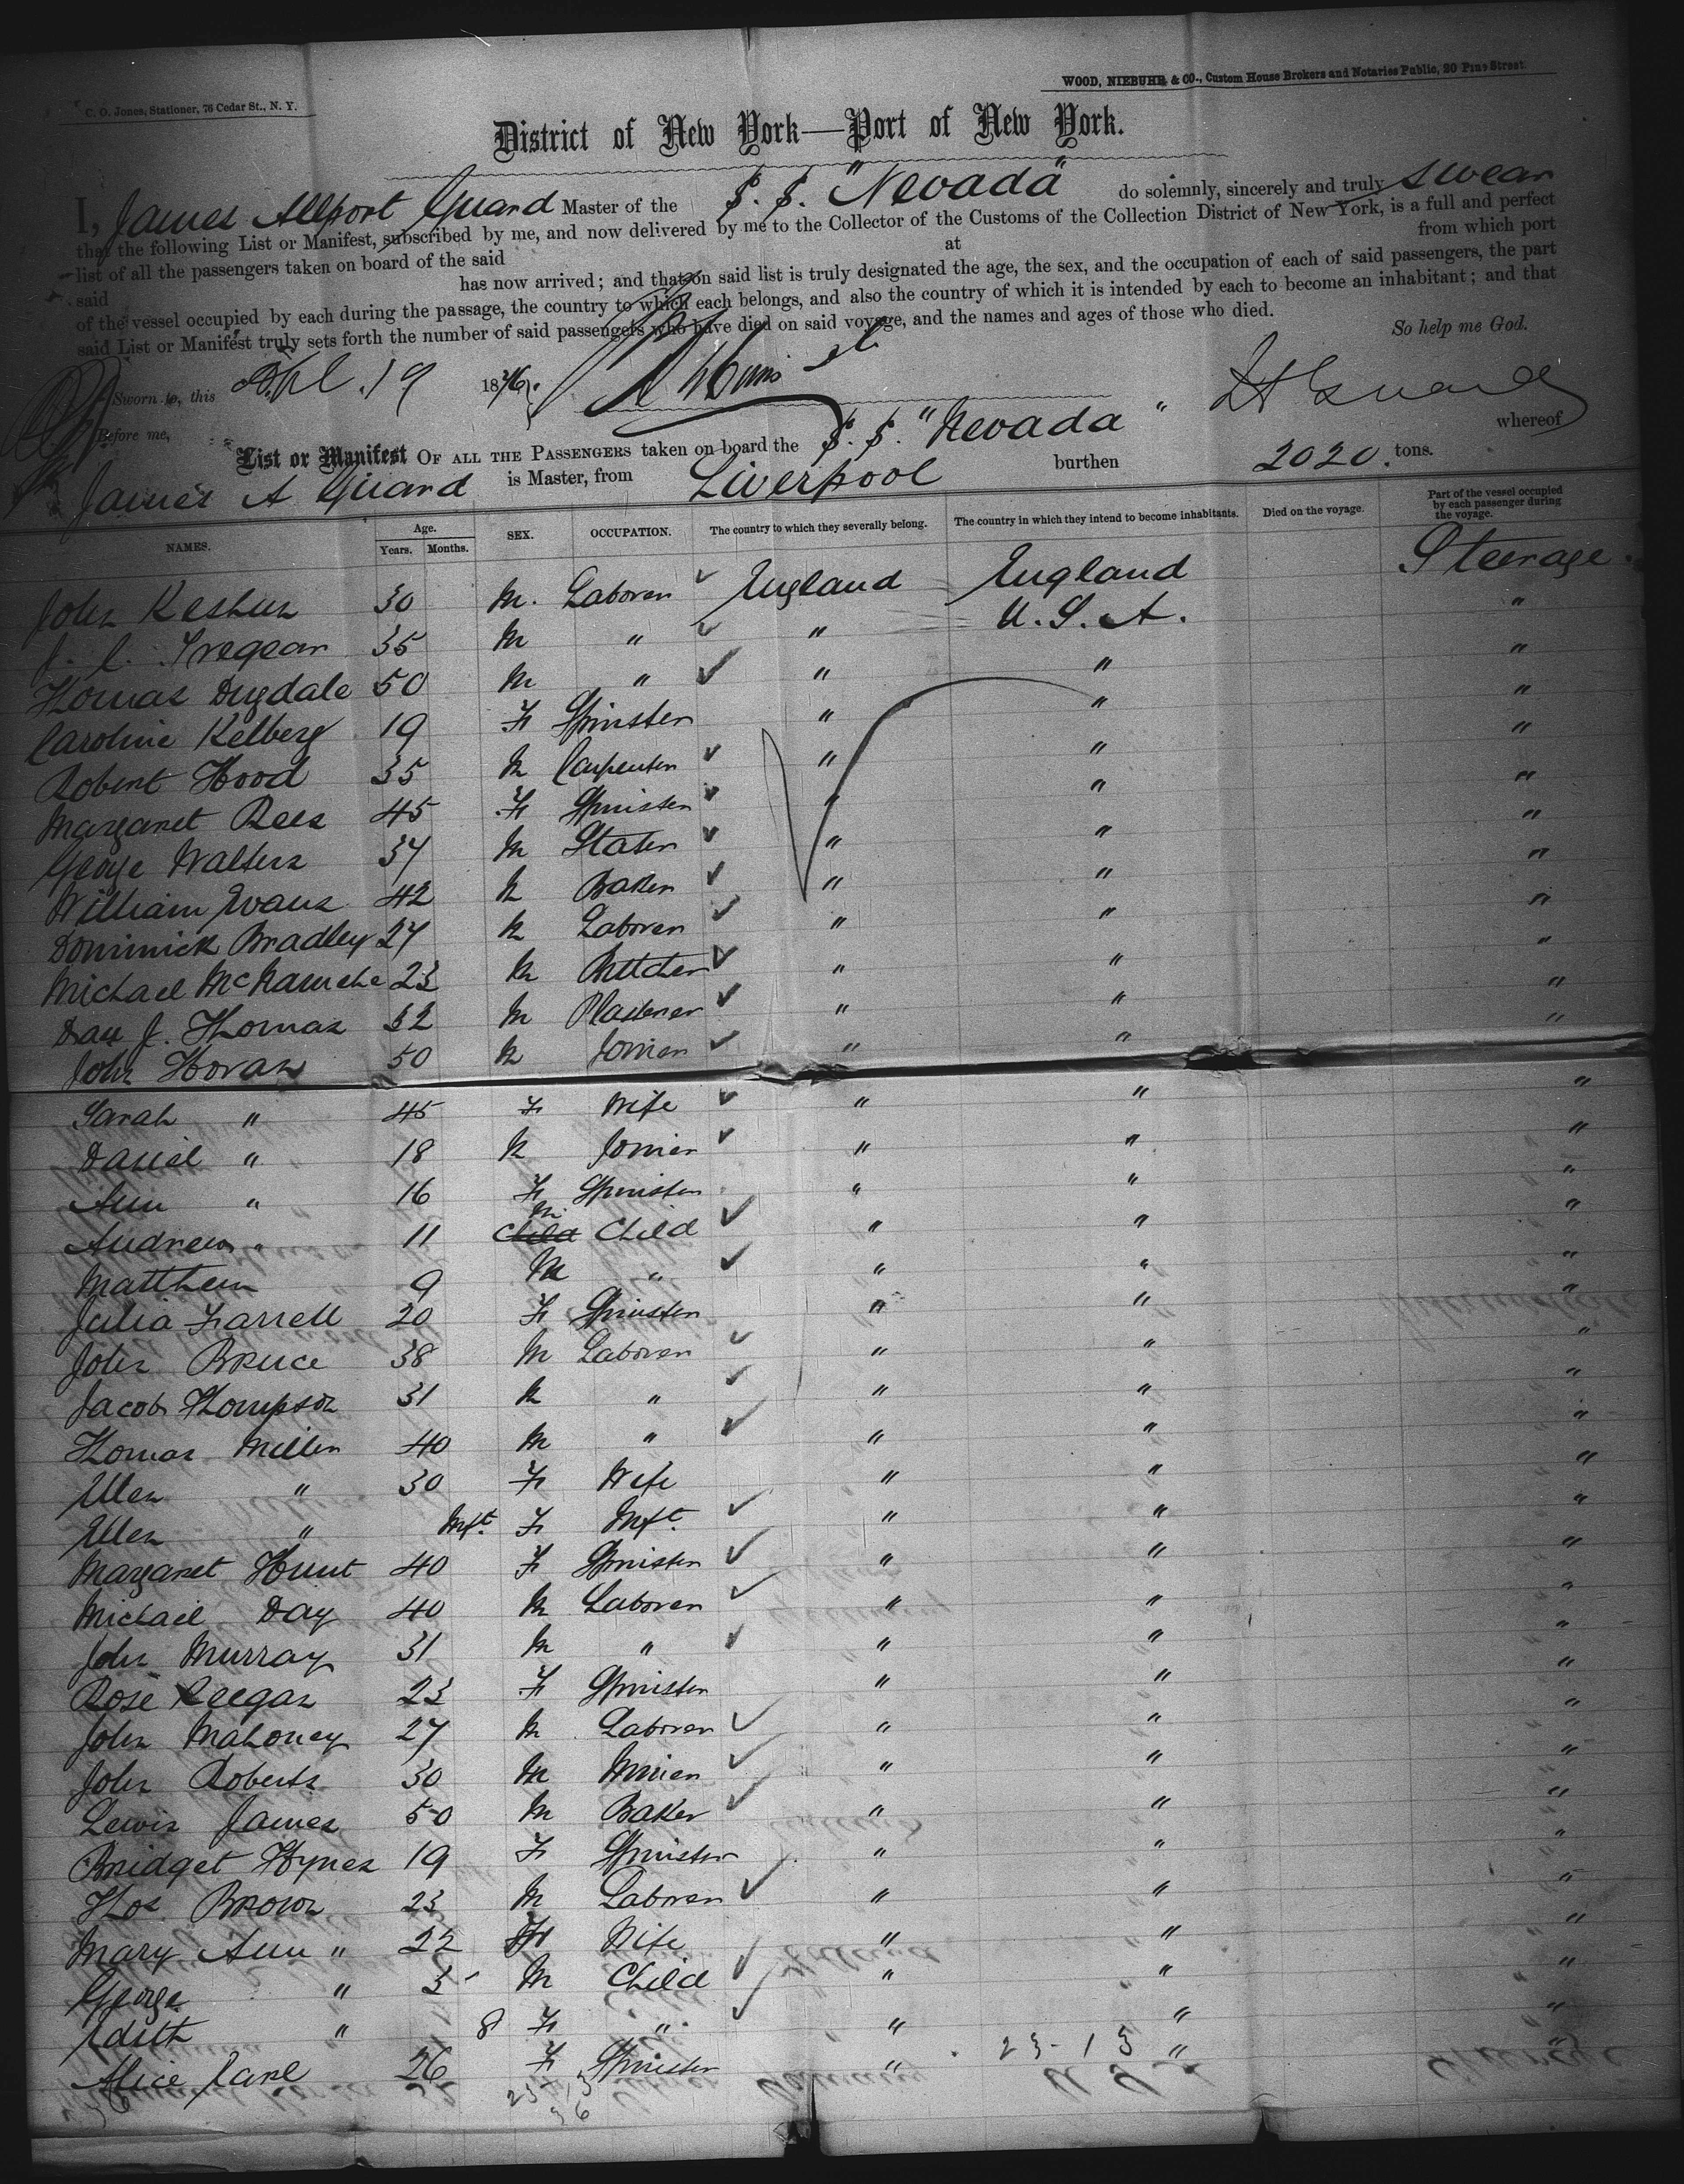 C. O. Jones, Stationer, 76 Cedar St., N. Y.
WOOD, NIEBUHR & CO., Custom House Brokers and Notaries Public, 20 Pine Street
District of New York—Port of New York.
I, James Allport Guard Master of the S. S. "Nevada" do solemnly, sincerely and truly swear
that the following List or Manifest, subscribed by me, and now delivered by me to the Collector of the Customs of the Collection District of New York, is a full and perfect
list of all the passengers taken on board of the said at from which port
said has now arrived; and that on said list is truly designated the age, the sex, and the occupation of each of said passengers, the part
of the vessel occupied by each during the passage, the country to which each belongs, and also the country of which it is intended by each to become an inhabitant; and that
said List or Manifest truly sets forth the number of said passengers who have died on said voyage, and the names and ages of those who died.
So help me God.
Sworn to, this Apl. 19 1876
Before me,
J A Guard
List or Manifest OF ALL THE PASSENGERS taken on board the S. S. "Nevada" whereof
James A Guard is Master, from Liverpool burthen 2020 tons.
NAMES. Age. Years. Months. SEX. OCCUPATION. The country to which they severally belong. The country in which they intend to become inhabitants. Died on the voyage. Part of the vessel occupied by each passenger during the voyage.
John 30 M. Laborer England England Steerage.
J. C. Tregear 35 M " " U. S. A. "
Thomas Dugdale 50 M " " " "
Caroline Kelberg 19 F Spinster " " "
Robert Hood 35 M Carpenter " " "
Margaret Rees 45 F Spinster " " "
George Walters 37 M Slater " " "
William Evans 42 M Baker " " "
Dominick Bradley 27 M Laborer " " "
Michael 23 M Butcher " " "
J. Thomas 32 M Plasterer " " "
John Horan 50 M Joiner " " "
Sarah " 45 F Wife " " "
Daniel " 18 M Joiner " " "
Ann " 16 F Spinster " " "
Andrew " 11 Child M Child " " "
Matthew 9 M " " " "
Julia Farrell 20 F Spinster " " "
John Bruce 38 M Laborer " " "
Jacob Thompson 31 M " " " "
Thomas Miller 40 M " " " "
Ellen " 30 F Wife " " "
Ellen " Inft. F Inft. " " "
Margaret Hunt 40 F Spinster " " "
Michael Day 40 M Laborer " " "
John Murray 31 M " " " "
Rose Keegan 23 F Spinster " " "
John Mahoney 27 M Laborer " " "
John Roberts 30 M Miner " " "
Lewis James 50 M Baker " " "
Bridget Hynes 19 F Spinster " " "
Thos Brown 23 M Laborer " " "
Mary Ann " 22 F Wife " " "
George " 3 M Child " " "
Edith " 8 F " " " "
Alice Jane 26 F Spinster " " "
23-13
23-13
36